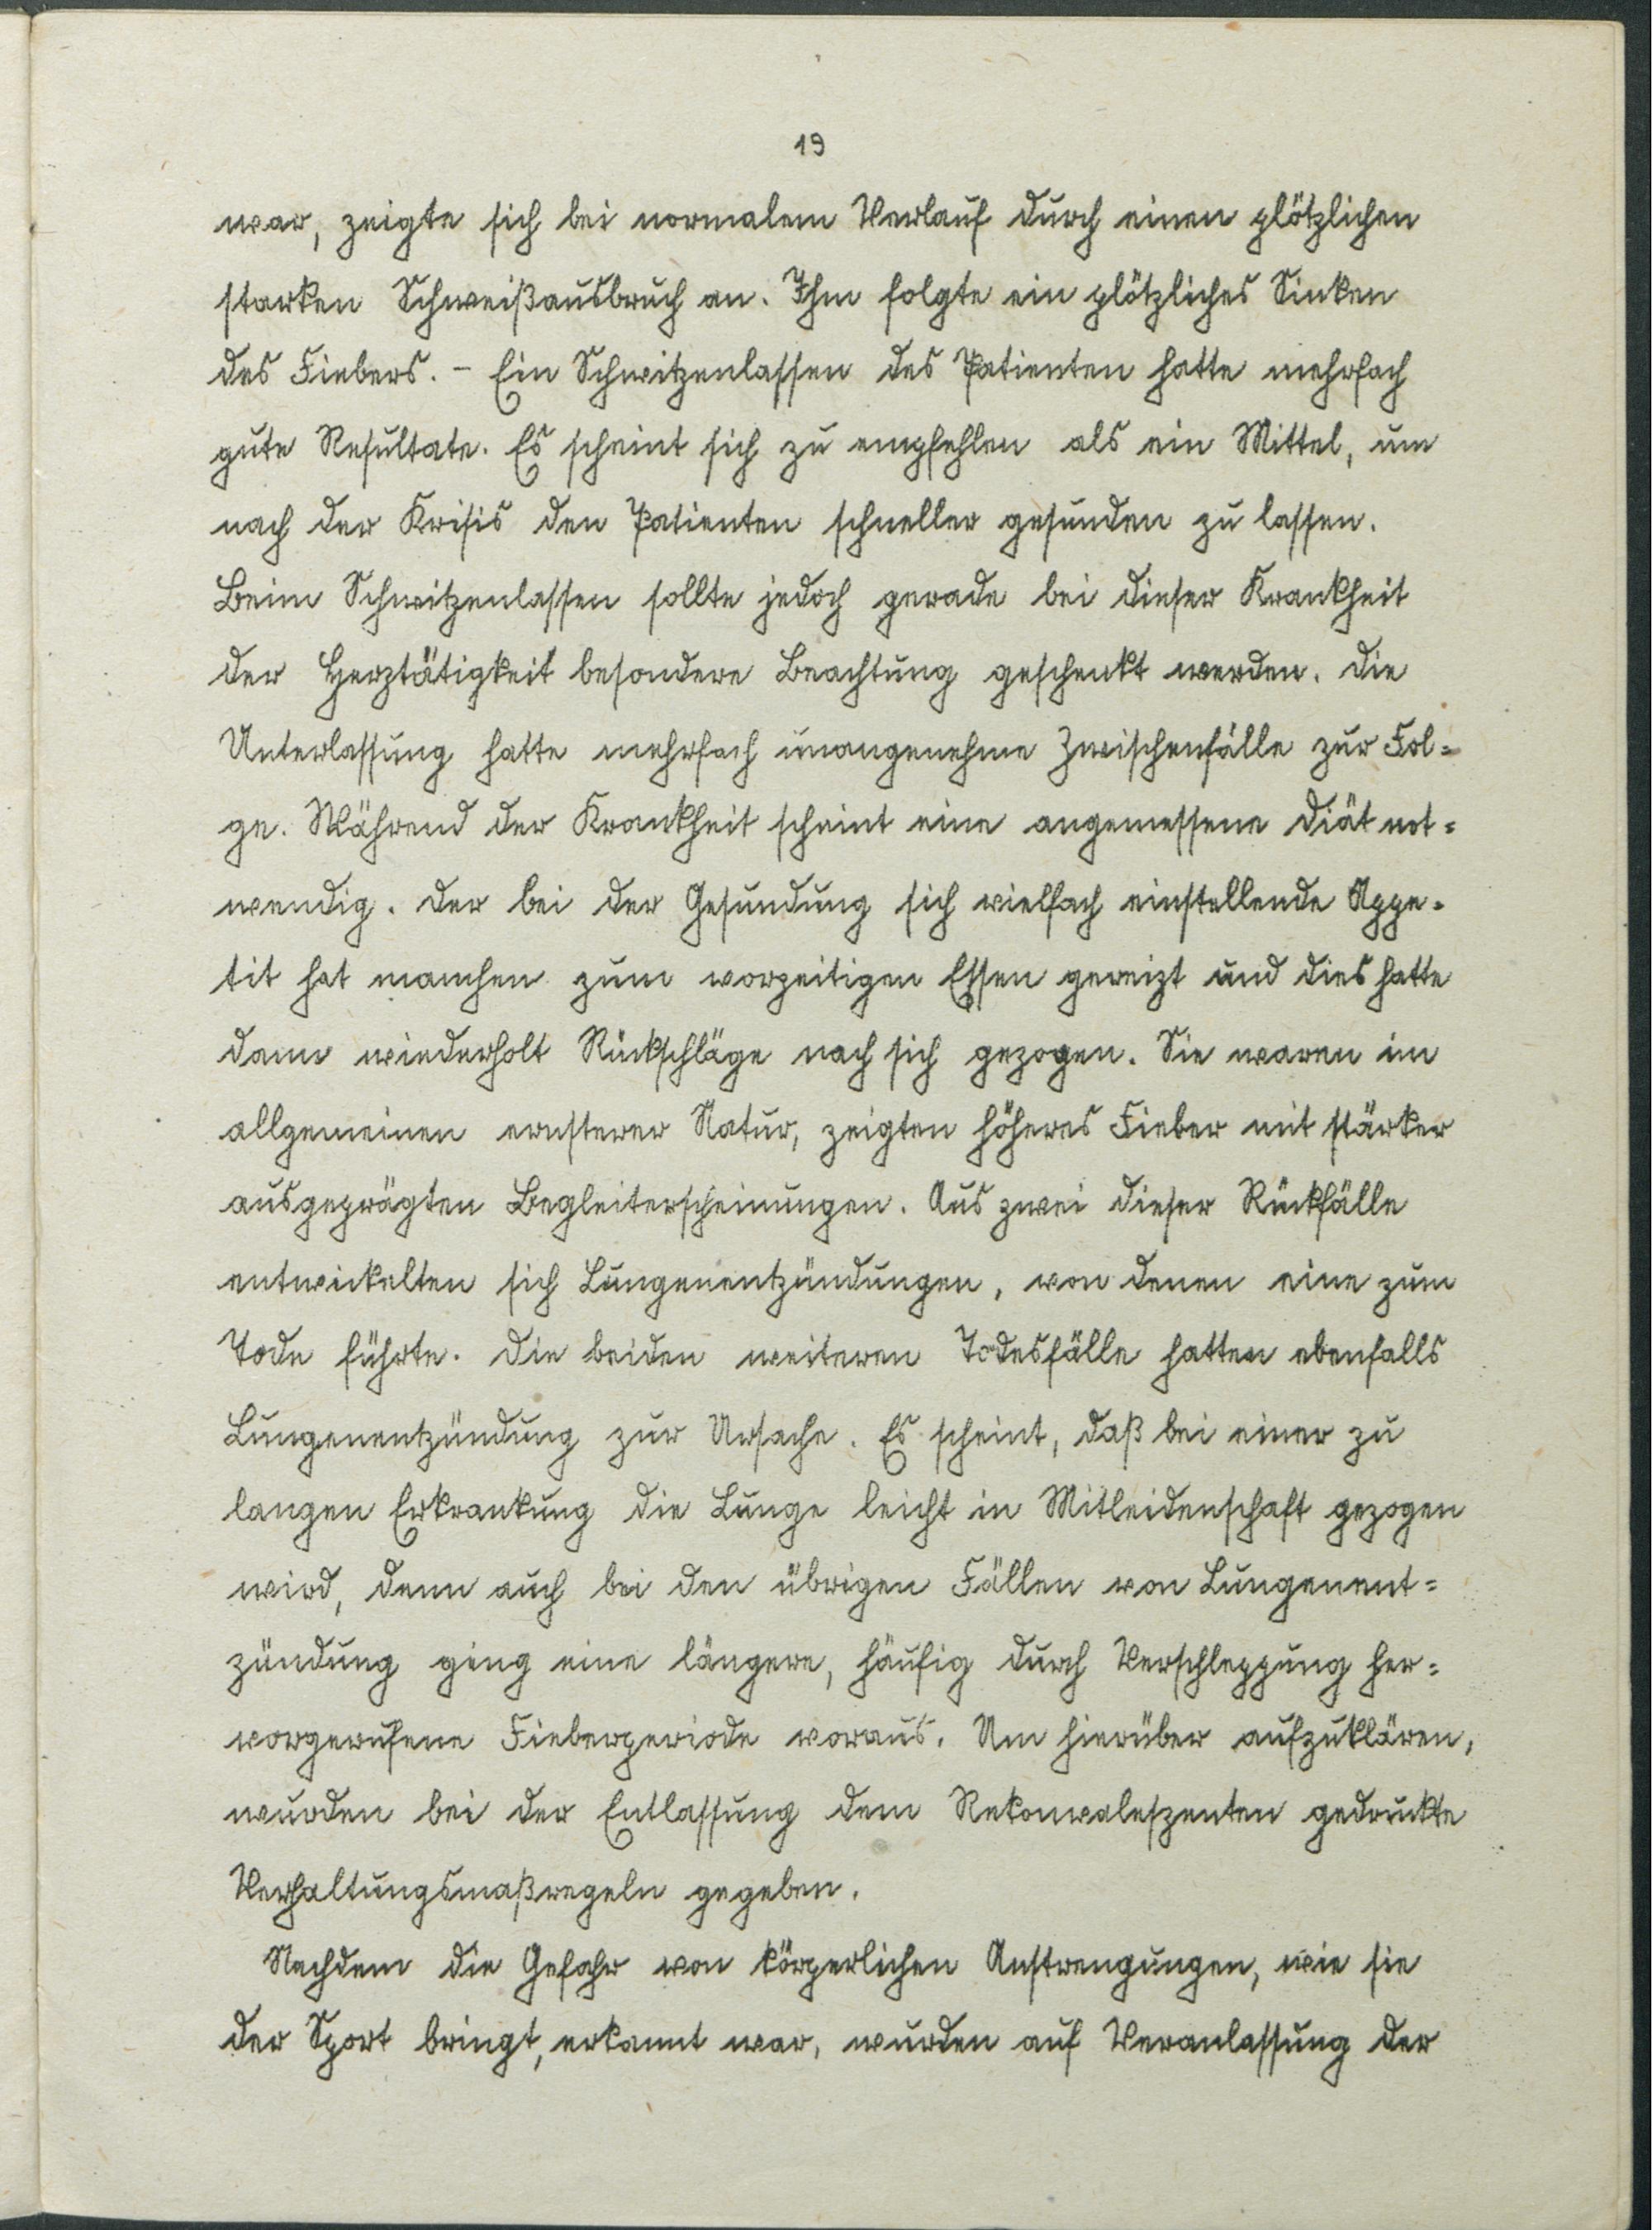 19
war, zeigte sich bei normalem Verlauf durch einen plötzlichen
starken Schweißausbruch an. Ihm folgte ein plötzliches Sinken
des Fiebers. – Ein Schwitzenlassen des Patienten hatte mehrfach
gute Resultate. Es scheint sich zu empfehlen als ein Mittel, um
nach der Krisis den Patienten schneller gesunden zu lassen.
Beim Schwitzenlassen sollte jedoch gerade bei dieser Krankheit
der Herztätigkeit besondere Beachtung geschenkt werden. Die
Unterlassung hatte mehrfach unangenehme Zwischenfälle zur Fol=
ge. Während der Krankheit scheint eine angemessene Diät not=
wendig. Der bei der Gesundung sich vielfach einstellende Appe=
tit hat manchen zum vorzeitigen Essen gereizt und dies hatte
dann wiederholt Rückschläge nach sich gezogen. Sie waren im
allgemeinen ernsterer Natur, zeigten höheres Fieber mit stärker
ausgeprägten Begleiterscheinungen. Aus zwei dieser Rückfälle
entwickelten sich Lungenentzündungen, von denen eine zum
Tode führte. Die beiden weiteren Todesfälle hatten ebenfalls
Lungenentzündung zur Ursache. Es scheint, daß bei einer zu
langen Erkrankung die Lunge leicht in Mitleidenschaft gezogen
wird, denn auch bei den übrigen Fällen von Lungenent=
zündung ging eine längere, häufig durch Verschleppung her=
vorgerufene Fieberperiode voraus. Um hierüber aufzuklären,
wurden bei der Entlassung dem Rekonvaleszenten gedruckte
Verhaltungsmaßregeln gegeben.
Nachdem die Gefahr von körperlichen Anstrengungen, wie sie
der Sport bringt, erkannt war, wurden auf Veranlassung der